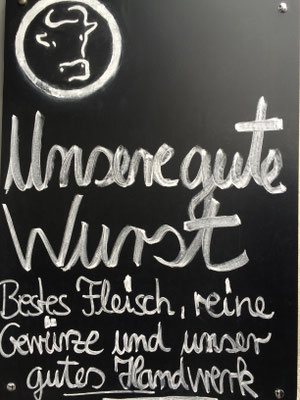 Unsere gute
Wurst
Bestes Fleisch, reine
Gewürze und unser
gutes Handwerk